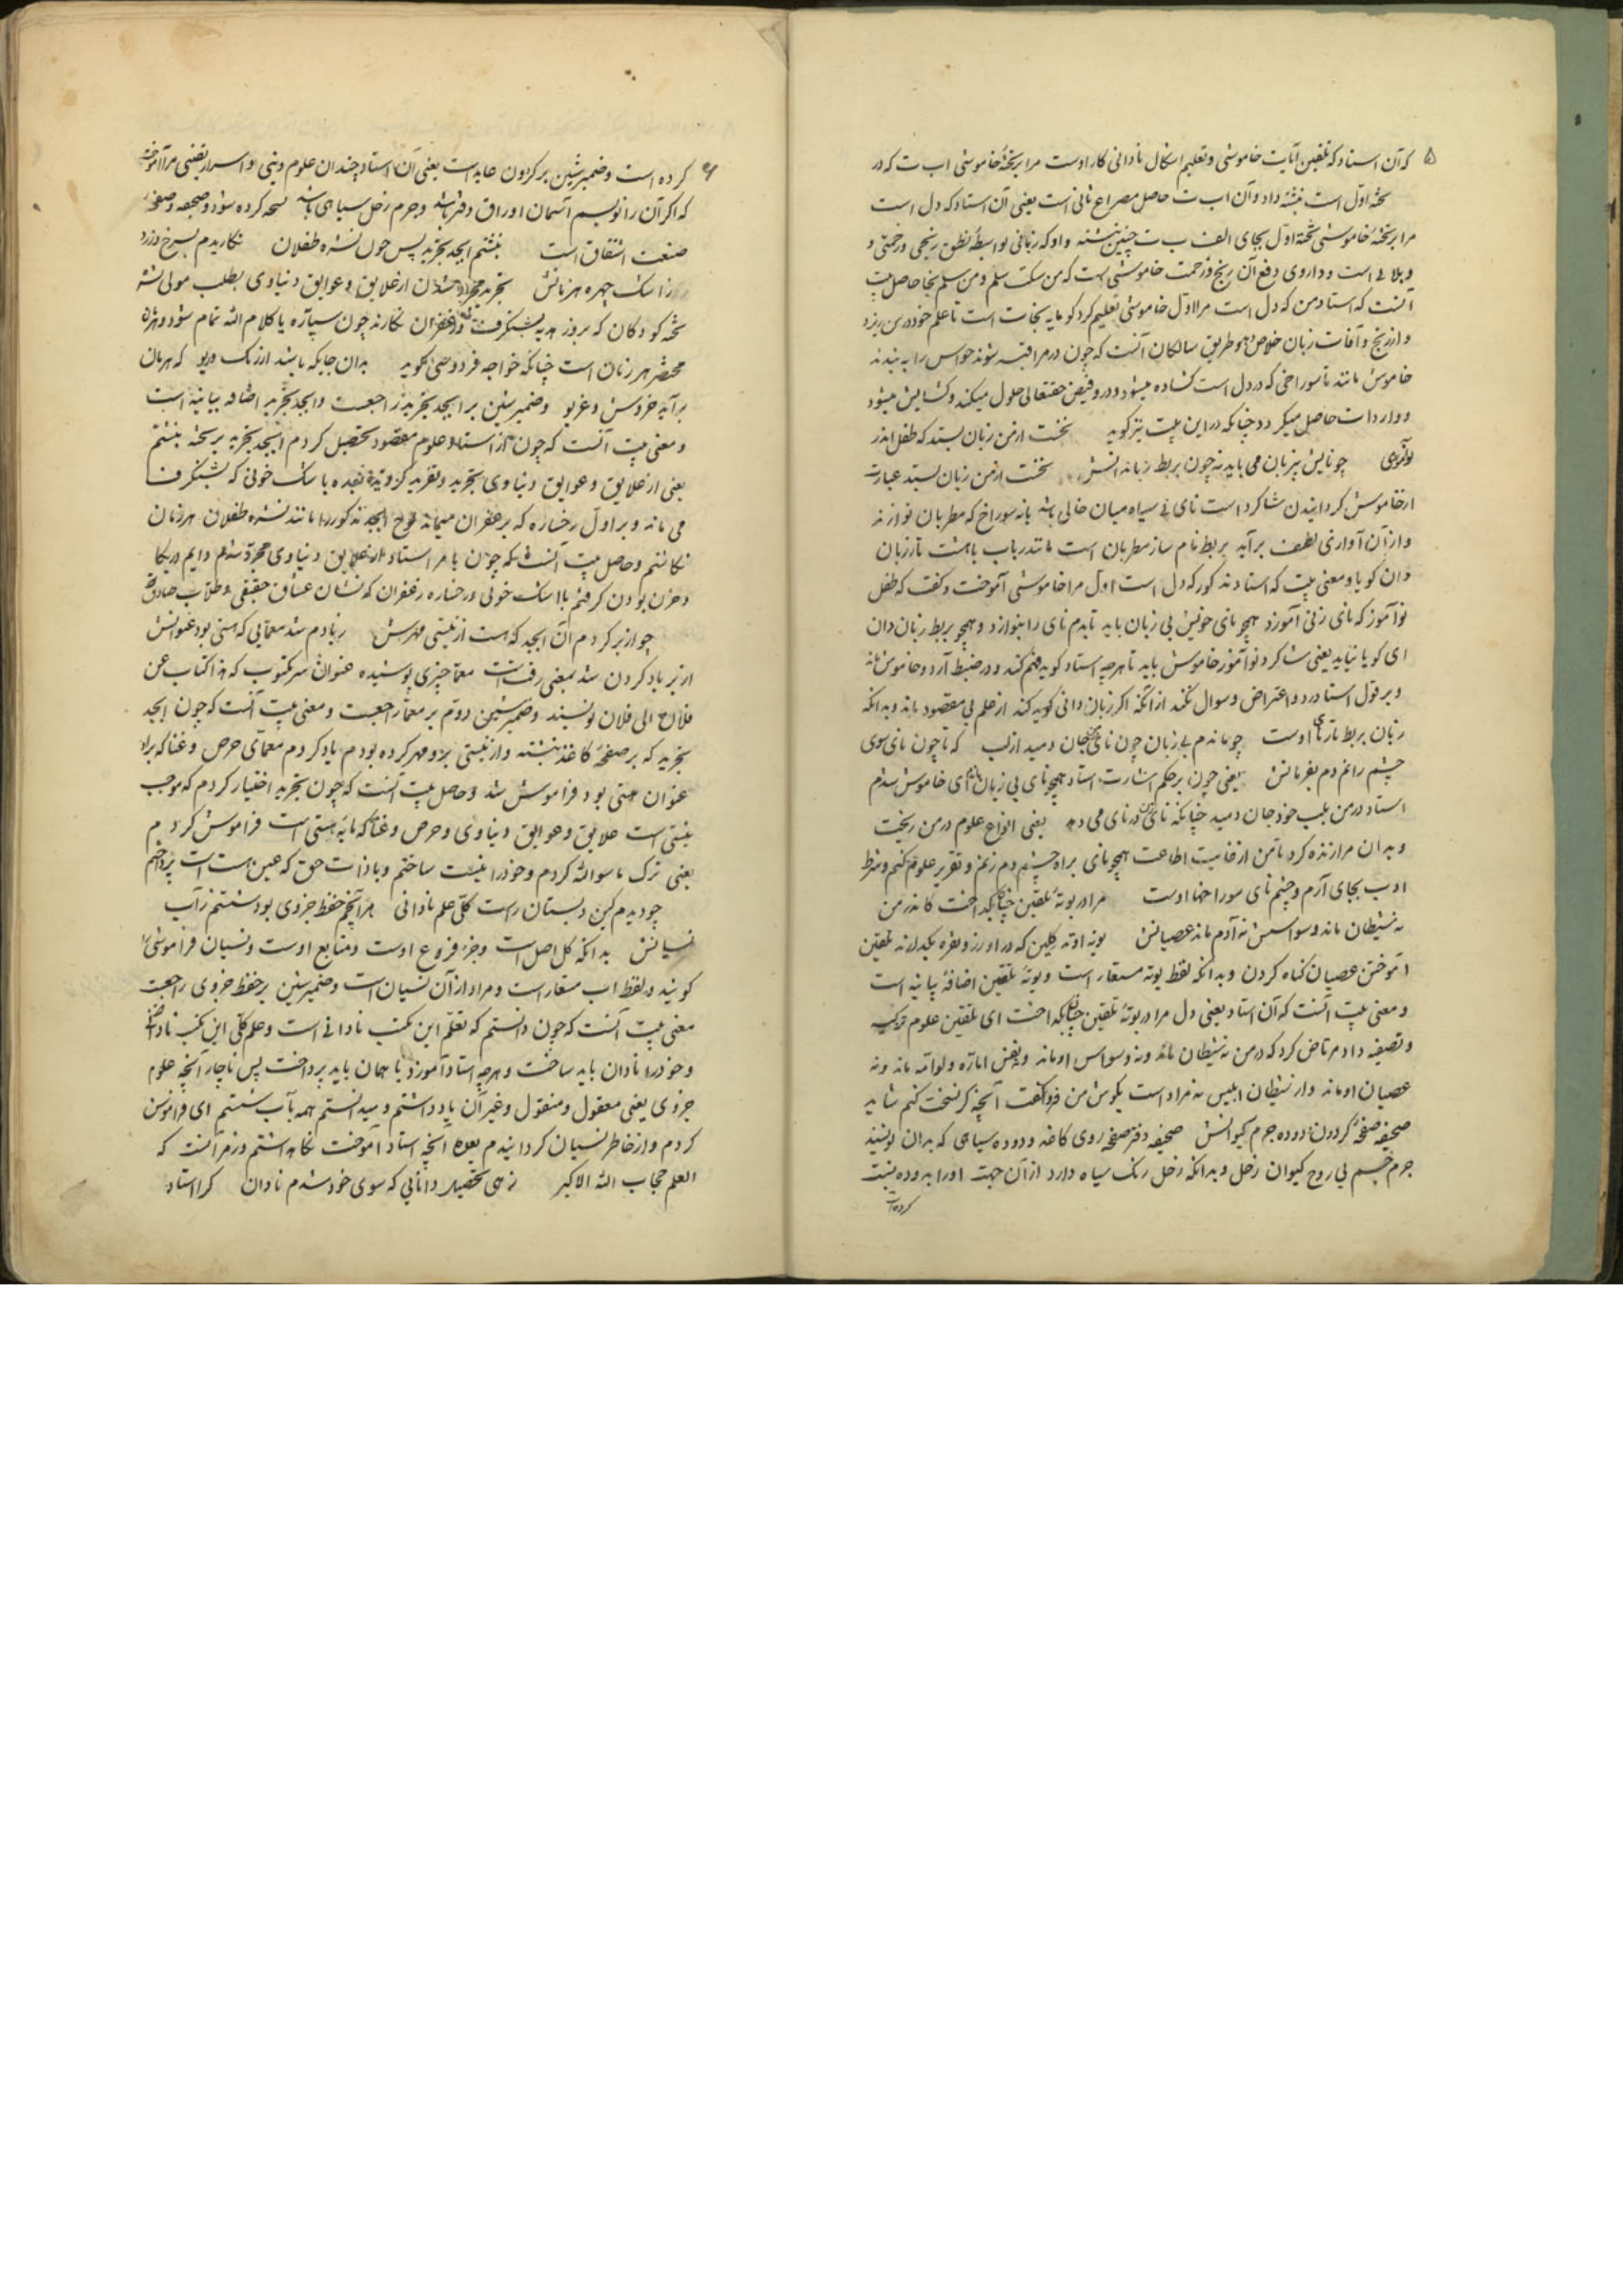 ۵
که آن استاد که تلقین آیات خاموشی و تعلیم اشکال نادانی کار اوست مرا بر تختهٔ خاموشی اب ت که در
تختهٔ اول است نبشته داد و آن اب ت حاصل مصراع ثانی است یعنی آن استاد که دل است
مرا بر تختهٔ خاموشی تختهٔ اول بجای الف ب ت چنین نبشته داد که زبانی بواسطهٔ نطق رنجی و زحمتی و
و بلائی است و داروی دفع آن رنج و زحمت خاموشی است که من سکت سلم و من سلم نجا حاصل بیت
آنست که استاد من که دل است مرا اول خاموشی تعلیم کرد کو مایه نجات است تا علم خود در من ریزد
و از رنج و آفات زبان خلاص و طریق سالکان آنست که چون در مراقبه شوند حواس را به بندند
خاموش مانند تا سوراخی که در دل است کشاده میشود و در و فیض حقتعالی حلول میکند و کشایش میشود
و واردات حاصل میکردد چنانکه در این بیت نیز کوید نخست از من زبان بستد که طفل اندر
نوآموزی چو نایش بیزبان می باید نه چون بربط زبانه دانش نخست از من زبان بستد عبارت
از خاموش کردانیدن شاکرد است نای نی سیاه میان خالی باشد با نه سوراخ که مطربان نوازند
و از آن آوازی لطیف برآید بربط نام ساز مطربان است مانند رباب با هشت تار زبان
دان کویا و معنی بیت که استاد مذکور که دل است اول مرا خاموشی آموخت و کفت که طفل
نوآموز که نای زنی آموزد همچو نای خویش بی زبان باید تا بدم نای را بنوازد و همچو بربط زبان دان
ای کویا نباید یعنی شاکرد نوآموز خاموش باید تا هرچه استاد کوید فهم کند و در ضبط آرد و خاموش ماند
و بر قول استاد رد و اعتراض و سوال نکند از آنکه اکر زبان دانی کوید کند از علم بی مقصود ماند و بدانکه
زبان بربط تارهای اوست چو ماندم بی زبان چون نای جان دمید از لب که تا چون نای سوی
چشم رانم دم بفرمانش یعنی چون بر حکم اشارت استاد همچو نای بی زبان ماندم ای خاموش شدم
استاد در من بلب خود جان دمید چنانکه نای زن در نای می دمد یعنی انواع علوم در من ریخت
و بدان مرا زنده کرد تا من از غایت اطاعت همچو نای براه چشم دم زنم و تقریر علوم کنم و شرط
ادب بجای آرم و چشم نای سوراخها اوست مرا در بوتهٔ تلقین چنان بکداخت کاندر من
نه شیطان ماند و وسواسش نه آدم ماند عصیانش بوته اوته کلین که در او زر و نقره بکدازند تلقین
آموختن عصیان کناه کردن و بدانکه لفظ بوته مستعار است و بوتهٔ تلقین اضافهٔ بیانیه است
و معنی بیت آنست که آن استاد یعنی دل مرا در بوتهٔ تلقین چنان بکداخت ای تلقین علوم تزکیه
و تصفیه داد مرتاض کرد که در من نه شیطان ماند و نه وسواس او ماند و نفس اماره و لوامه ماند و نه
عصیان او ماند و از شیطان ابلیس نه مراد است بکوش من فرو کفت آنچه کر نسخت کنم شاید
صحیفه صفحهٔ کردون و دوده جرم کیوانش صحیفه دفتر صفحه روی کاغذ و دوده سیاهی که بدان نویسند
جرم جسم بی روح کیوان زحل و بدانکه زحل رنک سیاه دارد از آن جهت او را بدوده نسبت
کرده است
۶
کرده است و ضمیر شین بر کردون عاید است یعنی آن استاد چندان علوم دینی و اسرار یقینی مرا آموخته
که اکر آن را نویسم آسمان اوراق دفتر باشد و جرم زحل سیاهی باشد نسخه کرده شود و صحیفه و صفحه
صنعت اشتقاق است نبشتم ابجد تجرید پس چون نشره طفلان نکاریدم بسرخ و زرد
ز اشک چهره هزمانش تجرید مجرد شدن از علایق و عوایق دنیاوی بطلب مولی نشره
تختهٔ کودکان که بروز هدیه بشنکرف و زعفران نکارند چون سیپاره یا کلام الله تمام شود و هزمان
مخفف هر زمان است چنانکه خواجه فردوسی نکوید بدان جایکه باشد ارژنک دیو که هزمان
برآید خروش و غریو و ضمیر شین بر ابجد تجرید راجعست و ابجد تجرید اضافه بیانیه است
و معنی بیت آنست که چون از استاد علوم مقصود تحصیل کردم ابجد تجرید بر تخته بنبشتم
یعنی از علایق و عوایق دنیاوی تجرید و تفرید کزیده بعده با اشک خونی که شنکرف
می ماند و بر اول رخساره که بزعفران میماند لوح ابجد مذکور را مانند نشره طفلان هر زمان
نکاشتم و حاصل بیت آنست که چون با مر استاد از علایق دنیاوی مجرد شدم دایم در بکا
و حزن بودن کرفتم با اشک خونی و رخساره زعفران که نشان عشاق حقیقی و طلاب صادق
چو از بر کردم آن ابجد که هست از نیستی مهرش ز یادم شد معمایی که هستی بود عنوانش
از بر یاد کردن شد بمعنی رفت است معما چیزی پوشیده عنوان سر مکتوب که هذا کتاب من
فلان الی فلان نویسند و ضمیر شین دوم بر معما راجعست و معنی بیت آنست که چون ابجد
تجرید که بر صفحهٔ کاغذ نبشته و از نیستی برو مهر کرده بودم یاد کردم معمای حرص و غنا که براو
عنوان هستی بود فراموش شد و حاصل بیت آنست که چون تجرید اختیار کردم که موجب
نیستی است علایق و عوایق دنیاوی و حرص و غنا که مایه هستی است فراموش کردم
یعنی ترک ما سوالله کردم و خود را نیست ساختم و با ذات حق که عین هست است پرداختم
چو دیدم کین دبستان راست کلی علم نادانی هر آنچم حفظ جزوی بود شستم ز آب
نسیانش بدانکه کل اصل است و جزء فروع اوست و متابع اوست و نسیان فراموشی را
کویند و لفظ اب مستعار است و مراد از آن نسیان است و ضمیر شین بر حفظ جزوی راجعست
معنی بیت آنست که چون دانستم که تعلم این مکتب نادانی است و علم کلی این مکتب نادانی
و خود را نادان باید ساخت و هرچه استاد آموزد با همان باید پرداخت پس ناچار آنچه علوم
جزوی یعنی معقول و منقول و غیر آن یاد داشتم و میدانستم همه بآب شستم ای فراموش
کردم و از خاطر نسیان کردانیدم بعده آنچه استاد آموخت نکاه داشتم و رمز آنست که
العلم حجاب الله الاکبر زهی تحصیل دانایی که سوی خود شدم نادان کرا استاد